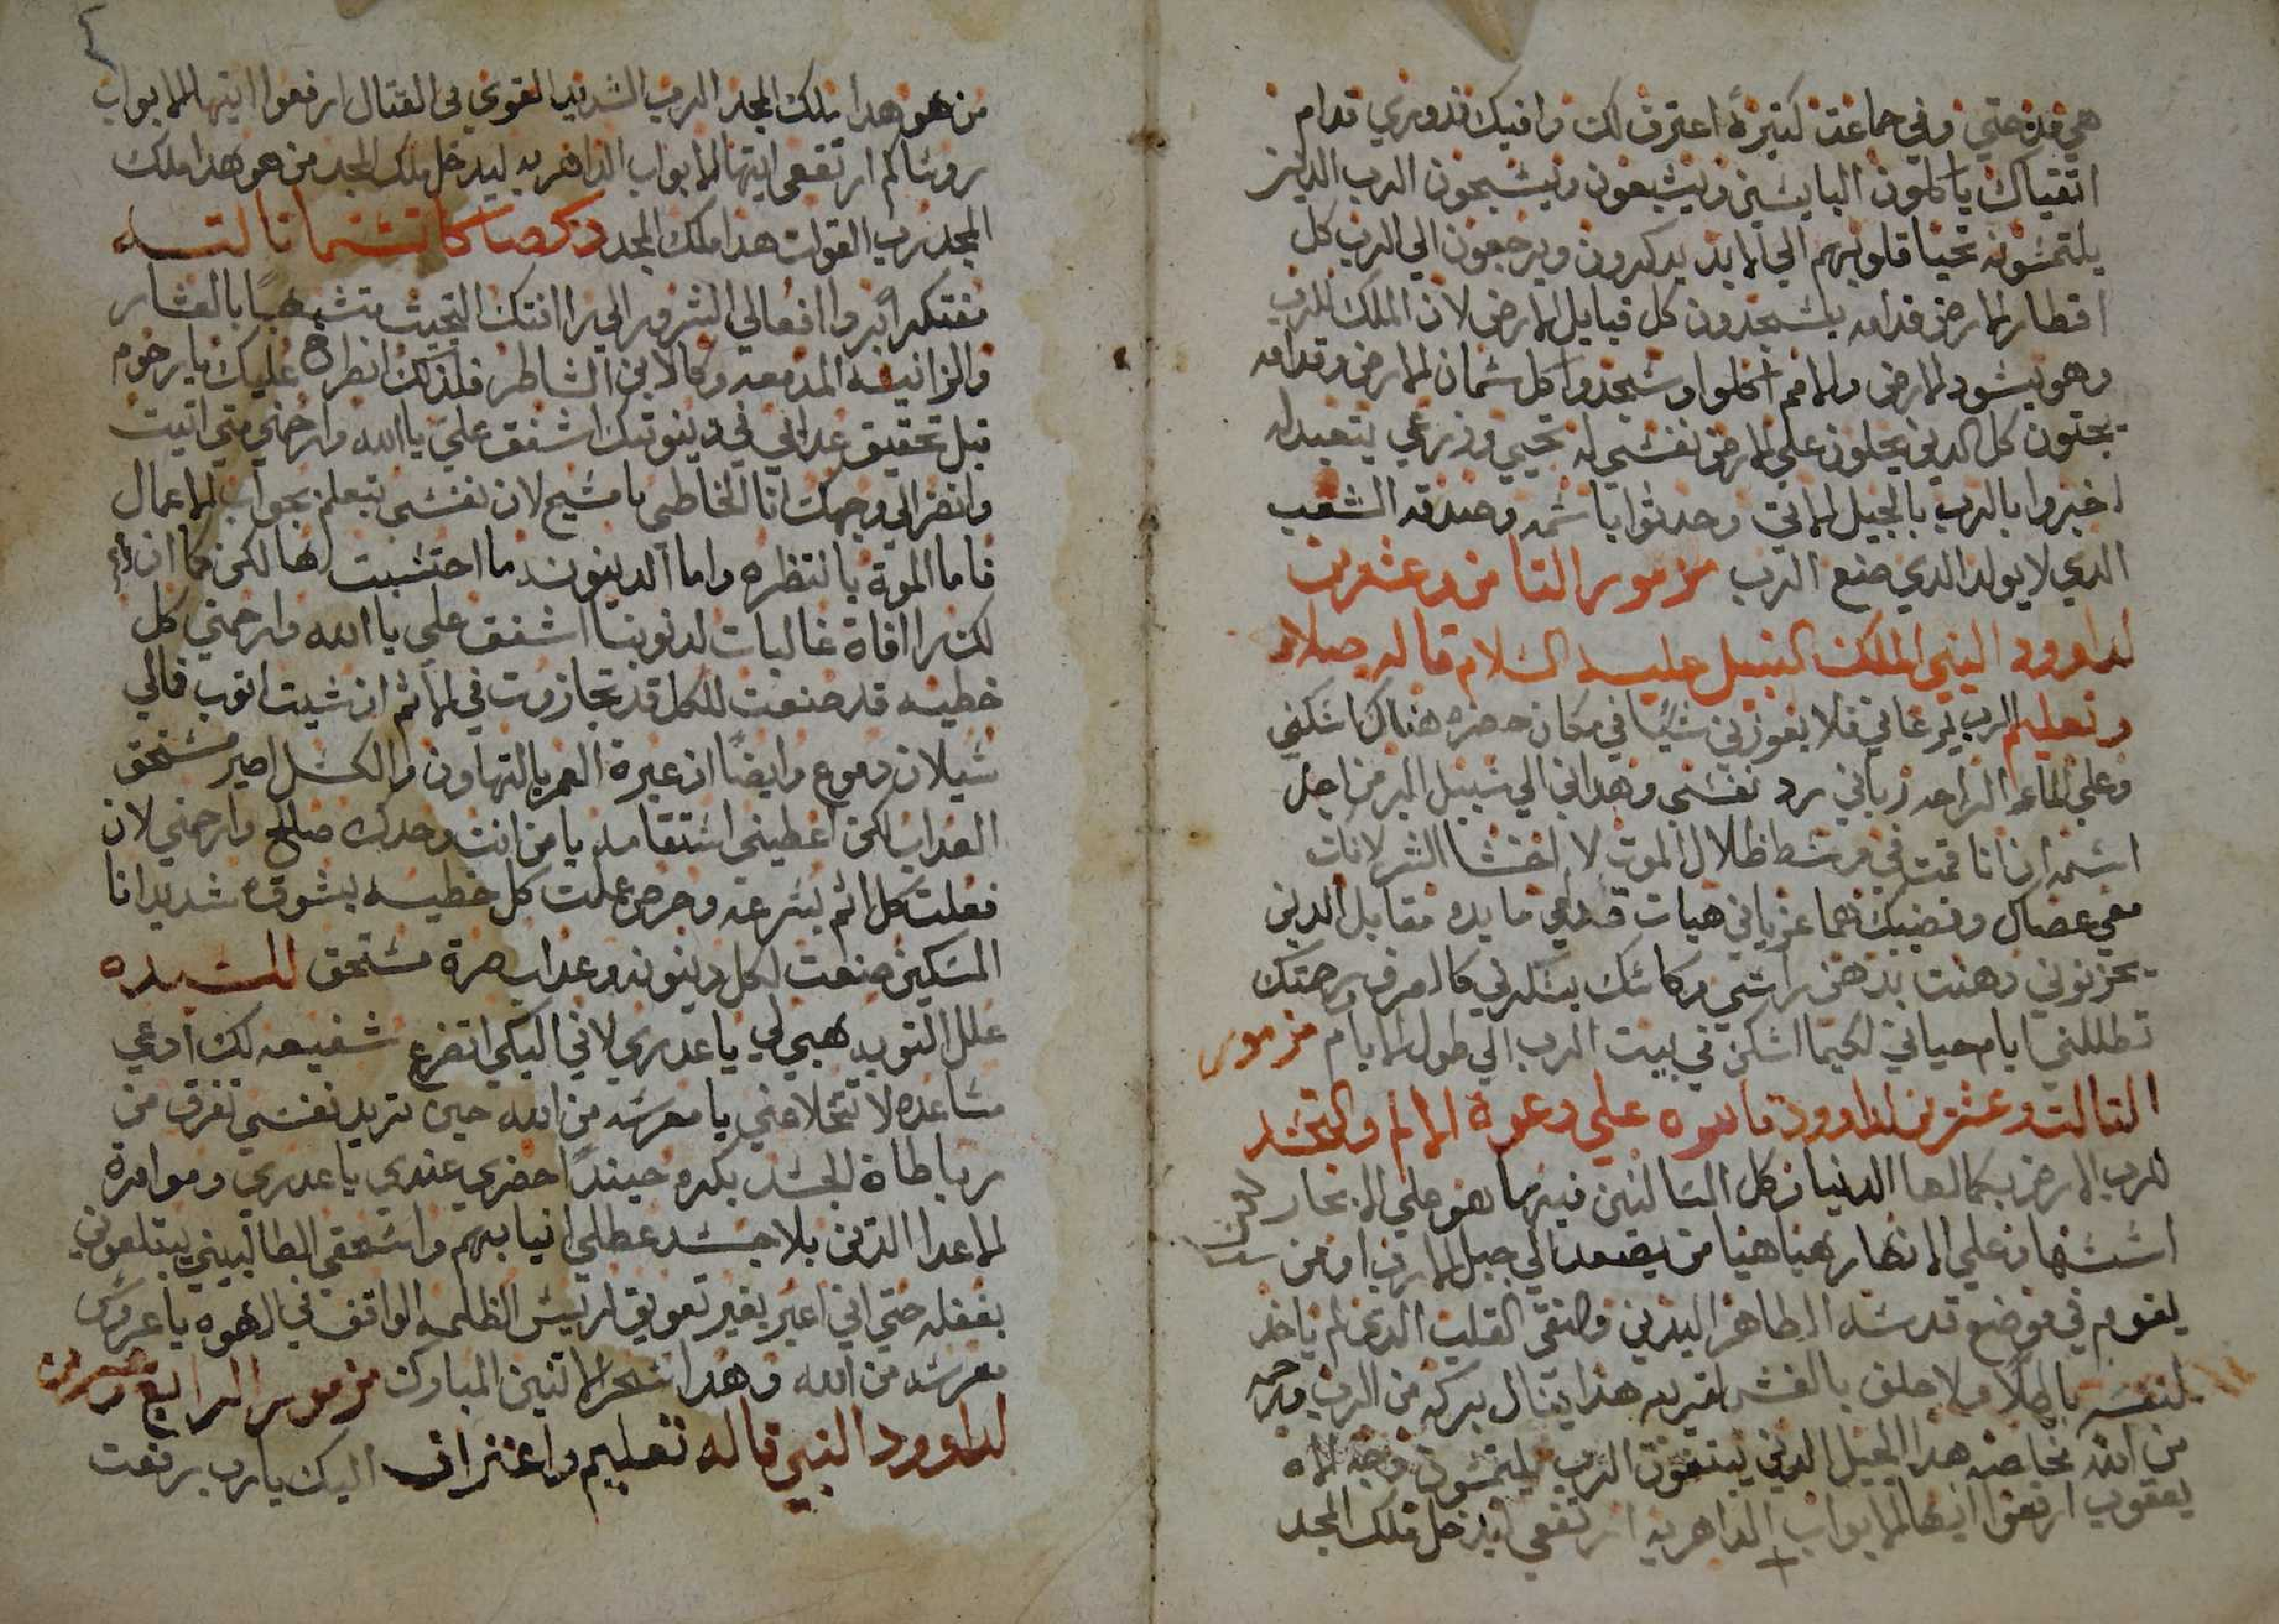 هي مدحتي وفي جماعة كتيرة اعترف لك وافيك ندوري قدام
اتقياك ياكلون البايسين ويشبعون ويسبحون الرب الدين
يلتمسونه تحيا قلوبهم الي الابد يدكرون ويرجعون الي الرب كل
اقطار الارض قدامه يسجدون كل قبايل الارض لان الملك للرب
وهو يسود الارض والامم اكلوا وسجدوا كل سمان الارض وقدامه
يجتون كل الدين يحلون علي الارض نفسي له تحيي وزرعي يتعبد له
اخبروا بالرب بالجيل الاتي وحدتوا باسمه وصدقه الشعب
الدي لا يولد الدي صنع الرب مزمور التامن وعشرين
لداوود النبي الملك النبيل عليه السلام قاله صلاه
وتعليم الرب يرعاني فلا يعوزني شيًا في مكان حضره هناك اسكني
وعلي الماء الراحه رباني رد نفسي وهداني الي سبيل البر من اجل
اسمه ان انا قمت في وسط ظلال الموت لا اخشا الشر لانك
معي عصاك وقضيبك هما عزياني هيات قدامي مايده مقابل الدين
يحزنوني دهنت بدهن راسي وكاسك يسكرني كالصرف ورحمتك
تطلبني ايام حياتي لكيما اسكن في بيت الرب الي طول الايام مزمور
التالت وعشرين لداوود علي دعوة الامم والتجسد
للرب الارض بكمالها الدنيا وكل السالنين فيها هو علي البحار
اسسها وعلي الانهار هياها من يصعد الي جبل الرب او من
يقوم في موضع قدسه الطاهر اليدين والنقي القلب الدي لم ياخد
لنفسه باطلًا ولا حلف بالغش لقريبه هدا ينال بركه من الرب ورحمه
من الله مخلصه هدا الجيل الدين يبتغون الرب يلتمسون وجه الاه
يعقوب ارفعوا ايتها الابواب الداهريه ارتفعي ليدخل ملك المجد
من هو هدا ملك المجد الرب الشديد القوي في القتال ارفعوا ايتها الابواب
روساكم ارتفعي ايتها الابواب الداهريه ليدخل ملك المجد من هو هدا ملك
المجد رب القوات هدا ملك المجد دكصا كاتسما تالته
مفتكرًا بروا افعالي الشرور الي را افتك التجيت متشبهًا بالعشار
والزانيه المدمعه وكالابن الشاطر فلدلك انطرح عليك يا رحوم
قبل تحقيق عدابي في دينونتك اشفق علي يا الله وارحمني متي اتيت
وانضر الي وجهك انا الخاطي يا مسيح لان نفسي تبعلم بجواب الاعمال
فاما الموة بانتظره واما الدينونه ما احتسبت لها لكن كما ان
لك راافاة غالبات لدنوبنا اشفق علي يا الله وارحمني كل
خطيه قد صنعت للكل قد تجازوت في الاثم ان شيت اتوب فالي
سيلان دموع وايضًا ان عبرة العمر بالتهاون والكسل اصير مستحق
العداب لكن اعطيني استقامه يا من انت وحدك صالح وارحمني لان
فعلت كل اثم بسرعه وحرص عملت كل خطيه بشوق شديد انا
المسكين صنعت لكل دينونه وعداب صرة مستحق للسيده
علل التوبه هبي لي يا عدري لاني اليكي اتضرع شفيعه لك ادعي
مساعده لا تتخلا عني يا معرسه من الله حين تريد نفسي تفرق من
رباطاة الجسد بكره حيندًا احضري عندي يا عدري وموامرة
الاعدا الدين بلا جسد عطلي انيابهم واسحقي الطالبيني يبتلعوني
بغفله حتي اني اعبر بغير تعويق لريس الظلمه الواقف في الهوه يا عروس
معرسه من الله وهدا سحر الاتنين المبارك مزمور الرابع وعشرين
لداوود النبي قاله تعليم واعتراف اليك يا رب رفعت